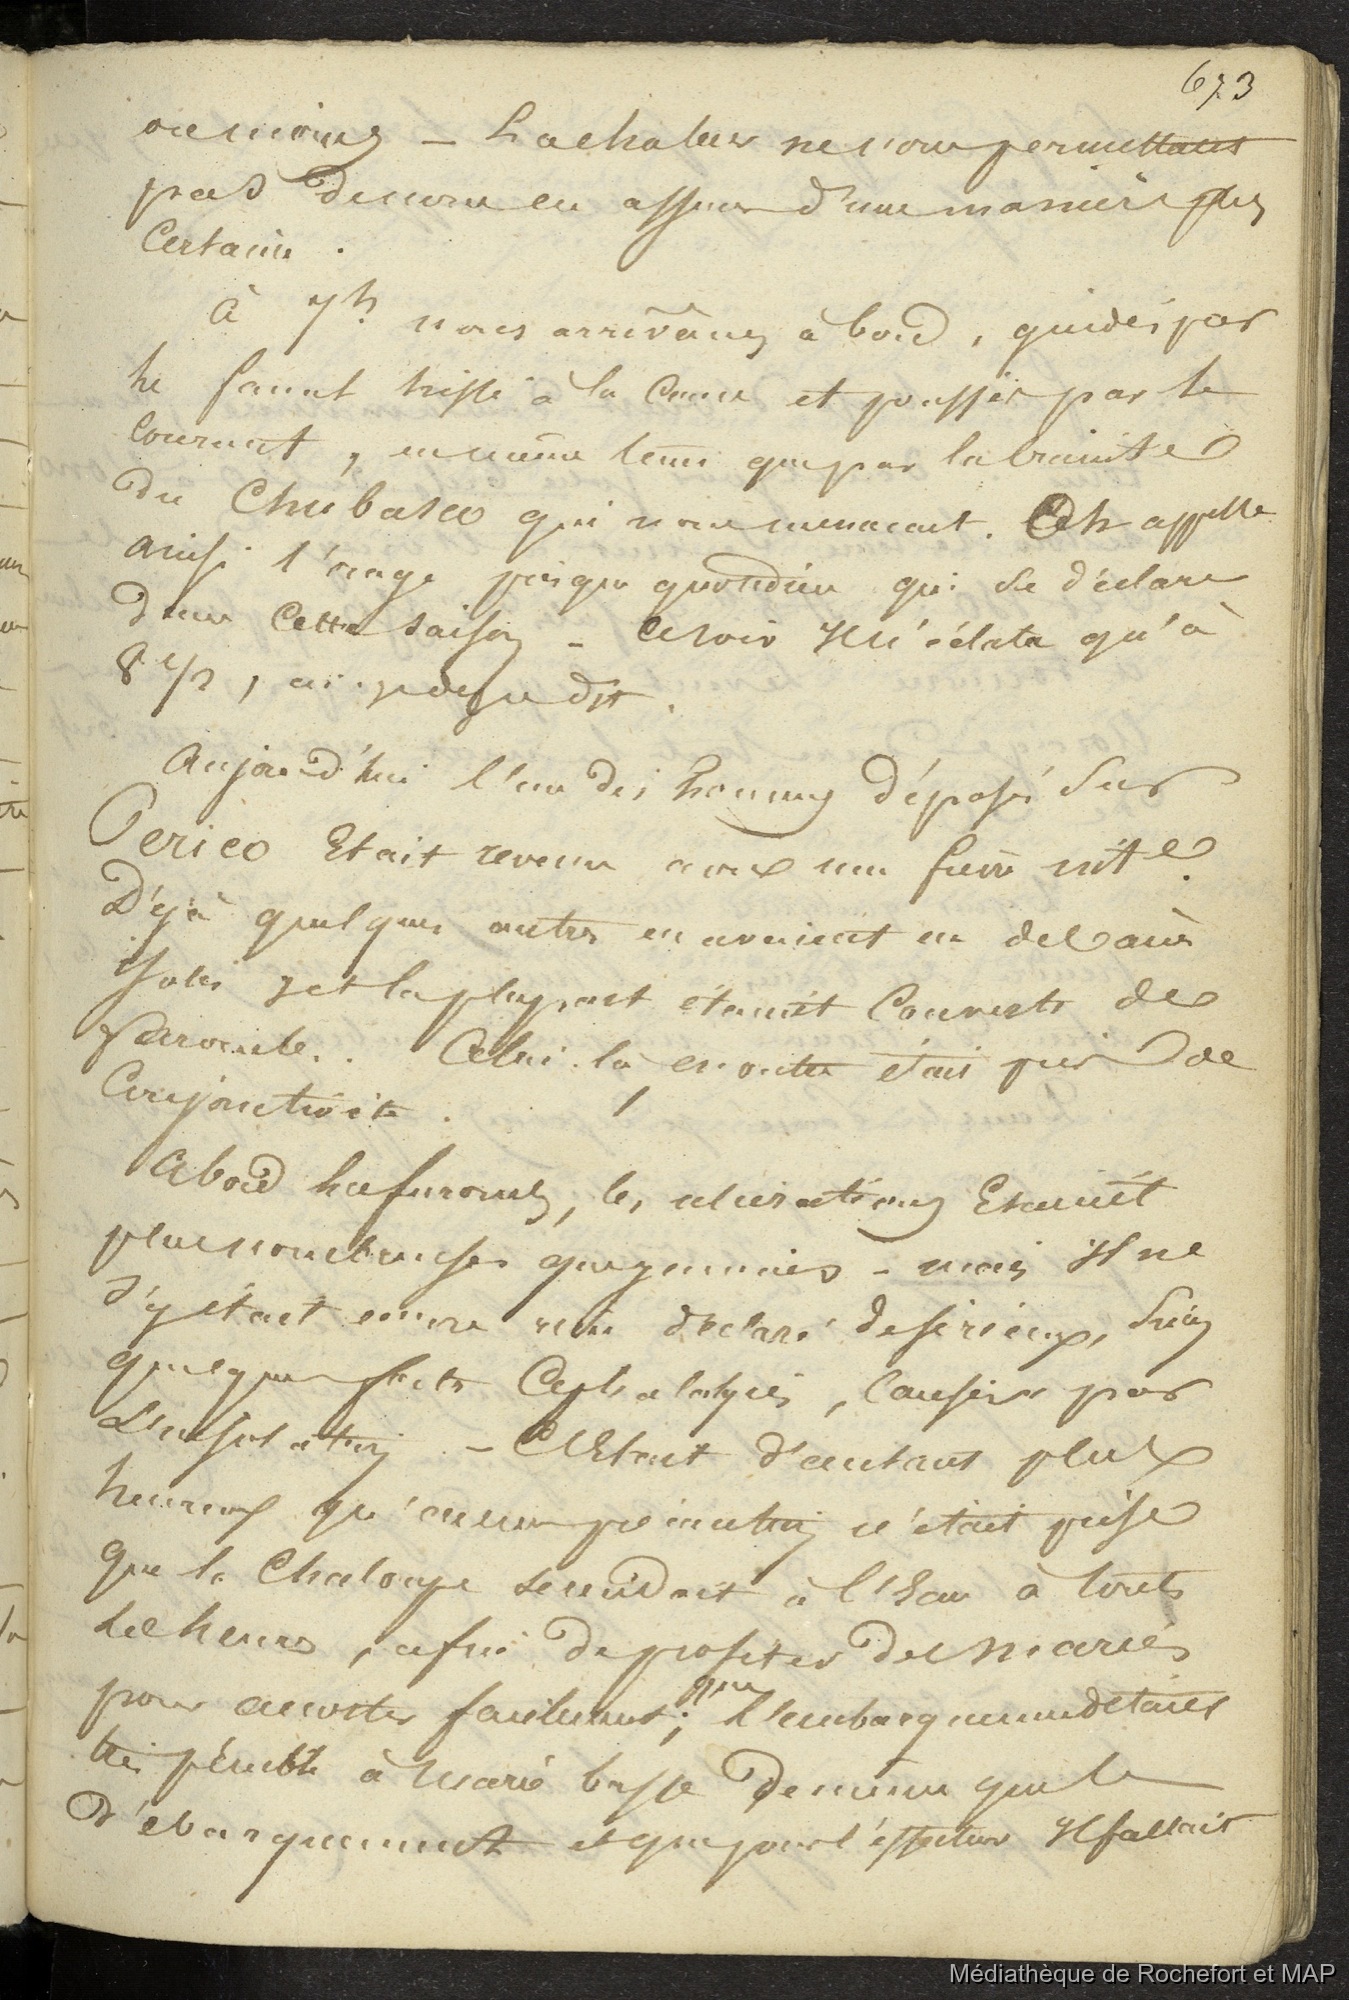 673
ou moins – La chaleur ne nous permettant
pas de nous en assurer d'une manière plus
Certaine .
à 7h. nous arrivâmes à bord , guidés par
le fanal hissé à la Corne et poussés par le
Courant , en même tems que par la crainte
du Chubasco qui nous menacait . On appelle
ainsi l'orage presque quotidien qui se déclare
dans Cette saison – Ce soir Il n'éclata qu'à
8 1/2 ,
Aujourd'hui l'un des hommes déposés Sur
Perico Etait revenu avec une fièvre intte.
Déjà quelques autres en avaient eu de
et la plupart étaient Couverts de
furoncles . Celui-là, en outre était pris de
Conjonctivite .
A bord les furoncles, les Etaient
plus nombreuses que jamais – mais Il ne
s'y était encore rien déclaré de sérieux, Sinon
quelques fortes Céphalalgies , Causées par
L'insolation . – C'Etait d'autant plus
heureux qu'aucune précaution n'était prise
que la Chaloupe se rendait à l'Eau à toutes
les heures , afin de profiter des marées
pour accoster facilement ; que l'embarquement étant
très pénible à marée basse de même que le
débarquement et que pour l'effectuer Il fallait
Médiathèque de Rochefort et MAP